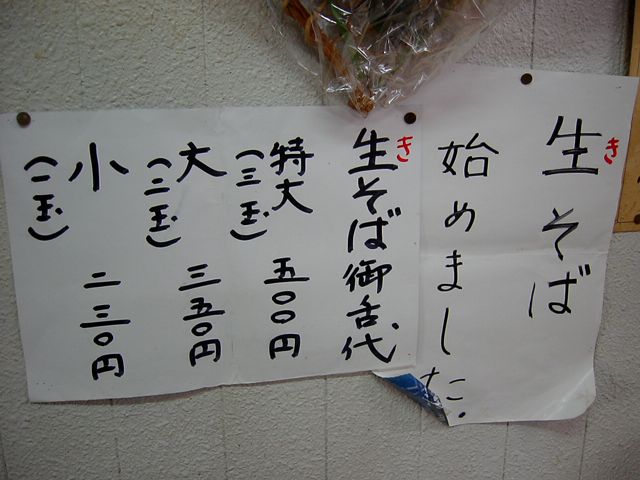 生そば
き
始めました.
生そば御舌代
き
特大 五〇〇円
(三玉)
大 三五〇円
(二玉)
小 二三〇円
(一玉)